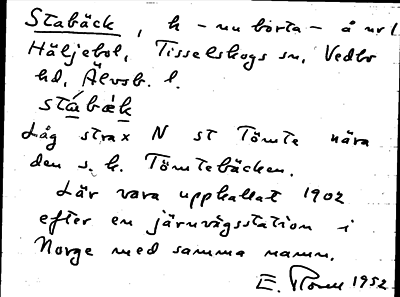 Stabäck, h – nu borta – å nr 1
Häljebol, Tisselskogs sn, Vedbo
hd, Älvsb. l.
stábæk
Låg strax N st Tömte nära
den s. k. Tömtebäcken.
Lär vara uppkallat 1902
efter en järnvägsstation i
Norge med samma namn.
E. 1952